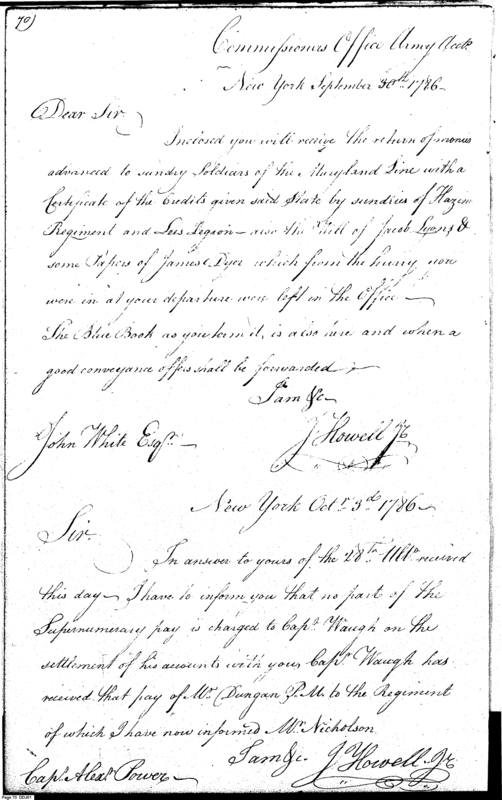 70)
Commissioners Office Army Acct.s
New York September 30th 1786
Dear Sir,
Inclosed you will receive the return of monies
advanced to sundry Soldiears of the Maryland Line with a
Certificate of the Credits given said State by sundries of Hazens
Regiment and Lees Legion — also the Will of Jacob Lyons &
some Papers of James Dyer which from the hurry you
were in at your departure were left in the Office —
The Blue Book as you term it, is also here and when a
good conveyance offers shall be forwarded
I am &c
John White Esqr. —
J Howell Jr
New York Octr. 3d 1786 —
Sir.
In answer to yours of the 28th Ulto received
this day — I have to inform you that no part of the
Supernumerary pay is charged to Capt. Waugh on the
settlement of his accounts with your Capt. Waugh has
received that pay of Mr. Dungan P.M. to the Regiment
of which I have now informed Mr. Nicholson
I am &c. J Howell Jr
Capt. Alexr. Power —